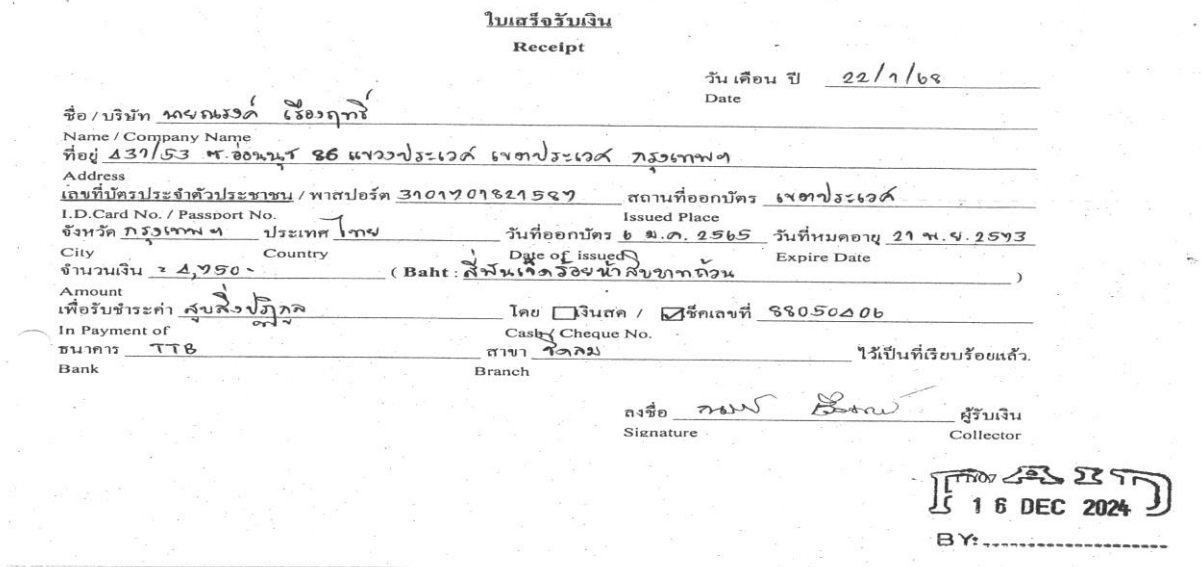 ใบเสร็จรับเงิน
Receipt
วัน เดือน ปี 22/1/68
Date
ชื่อ / บริษัท นายณรงค์ เรืองฤทธิ์
Name / Company Name
ที่อยู่ 437/53 ซ.อ่อนนุช 86 แขวงประเวศ เขตประเวศ กรุงเทพฯ
Address
เลขที่บัตรประจำตัวประชาชน / พาสปอร์ต 3101701821587 สถานที่ออกบัตร เขตประเวศ
I.D.Card No. / Passport No. Issued Place
จังหวัด กรุงเทพฯ ประเทศ ไทย วันที่ออกบัตร 6 มี.ค. 2565 วันที่หมดอายุ 21 พ.ย. 2573
City Country Date of issued Expire Date
จำนวนเงิน = 4,750 - ( Baht : สี่พันเจ็ดร้อยห้าสิบบาทถ้วน )
Amount
เพื่อรับชำระค่า สูบสิ่งปฏิกูล โดย เงินสด / เช็คเลขที่ 88050406
In Payment of Cash / Cheque No.
ธนาคาร TTB สาขา ชิดลม ไว้เป็นที่เรียบร้อยแล้ว.
Bank Branch
ลงชื่อ ผู้รับเงิน
Signature Collector
PAID
16 DEC 2024
BY: